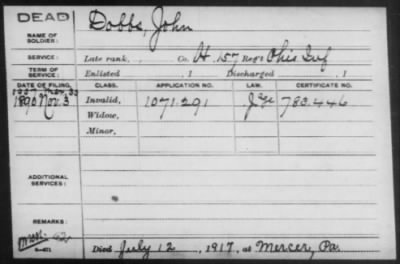 DEAD
NAME OF SOLDIER: Dobbs, John
SERVICE: Late rank, , Co. H. 157 Reg't Ohio Inf
TERM OF SERVICE: Enlisted , 1 Discharged , 1
DATE OF FILING. CLASS. APPLICATION NO. LAW. CERTIFICATE NO.
1890 Nov. 3 Invalid, 1071.291 780.446
Widow,
Minor,
ADDITIONAL SERVICES:
REMARKS:
Died July 12, 1917, at Mercer, Pa.